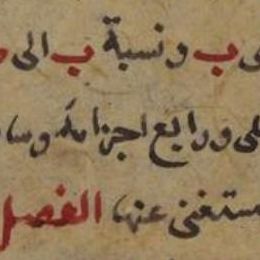 ب ونسبة ب الى
ورابع اجزامله وسا
مستغنى عنها الفصل